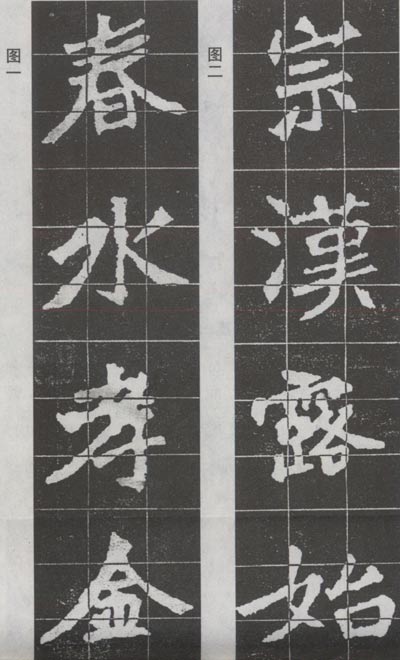 图一
春水孝金
图二
宗漢露始